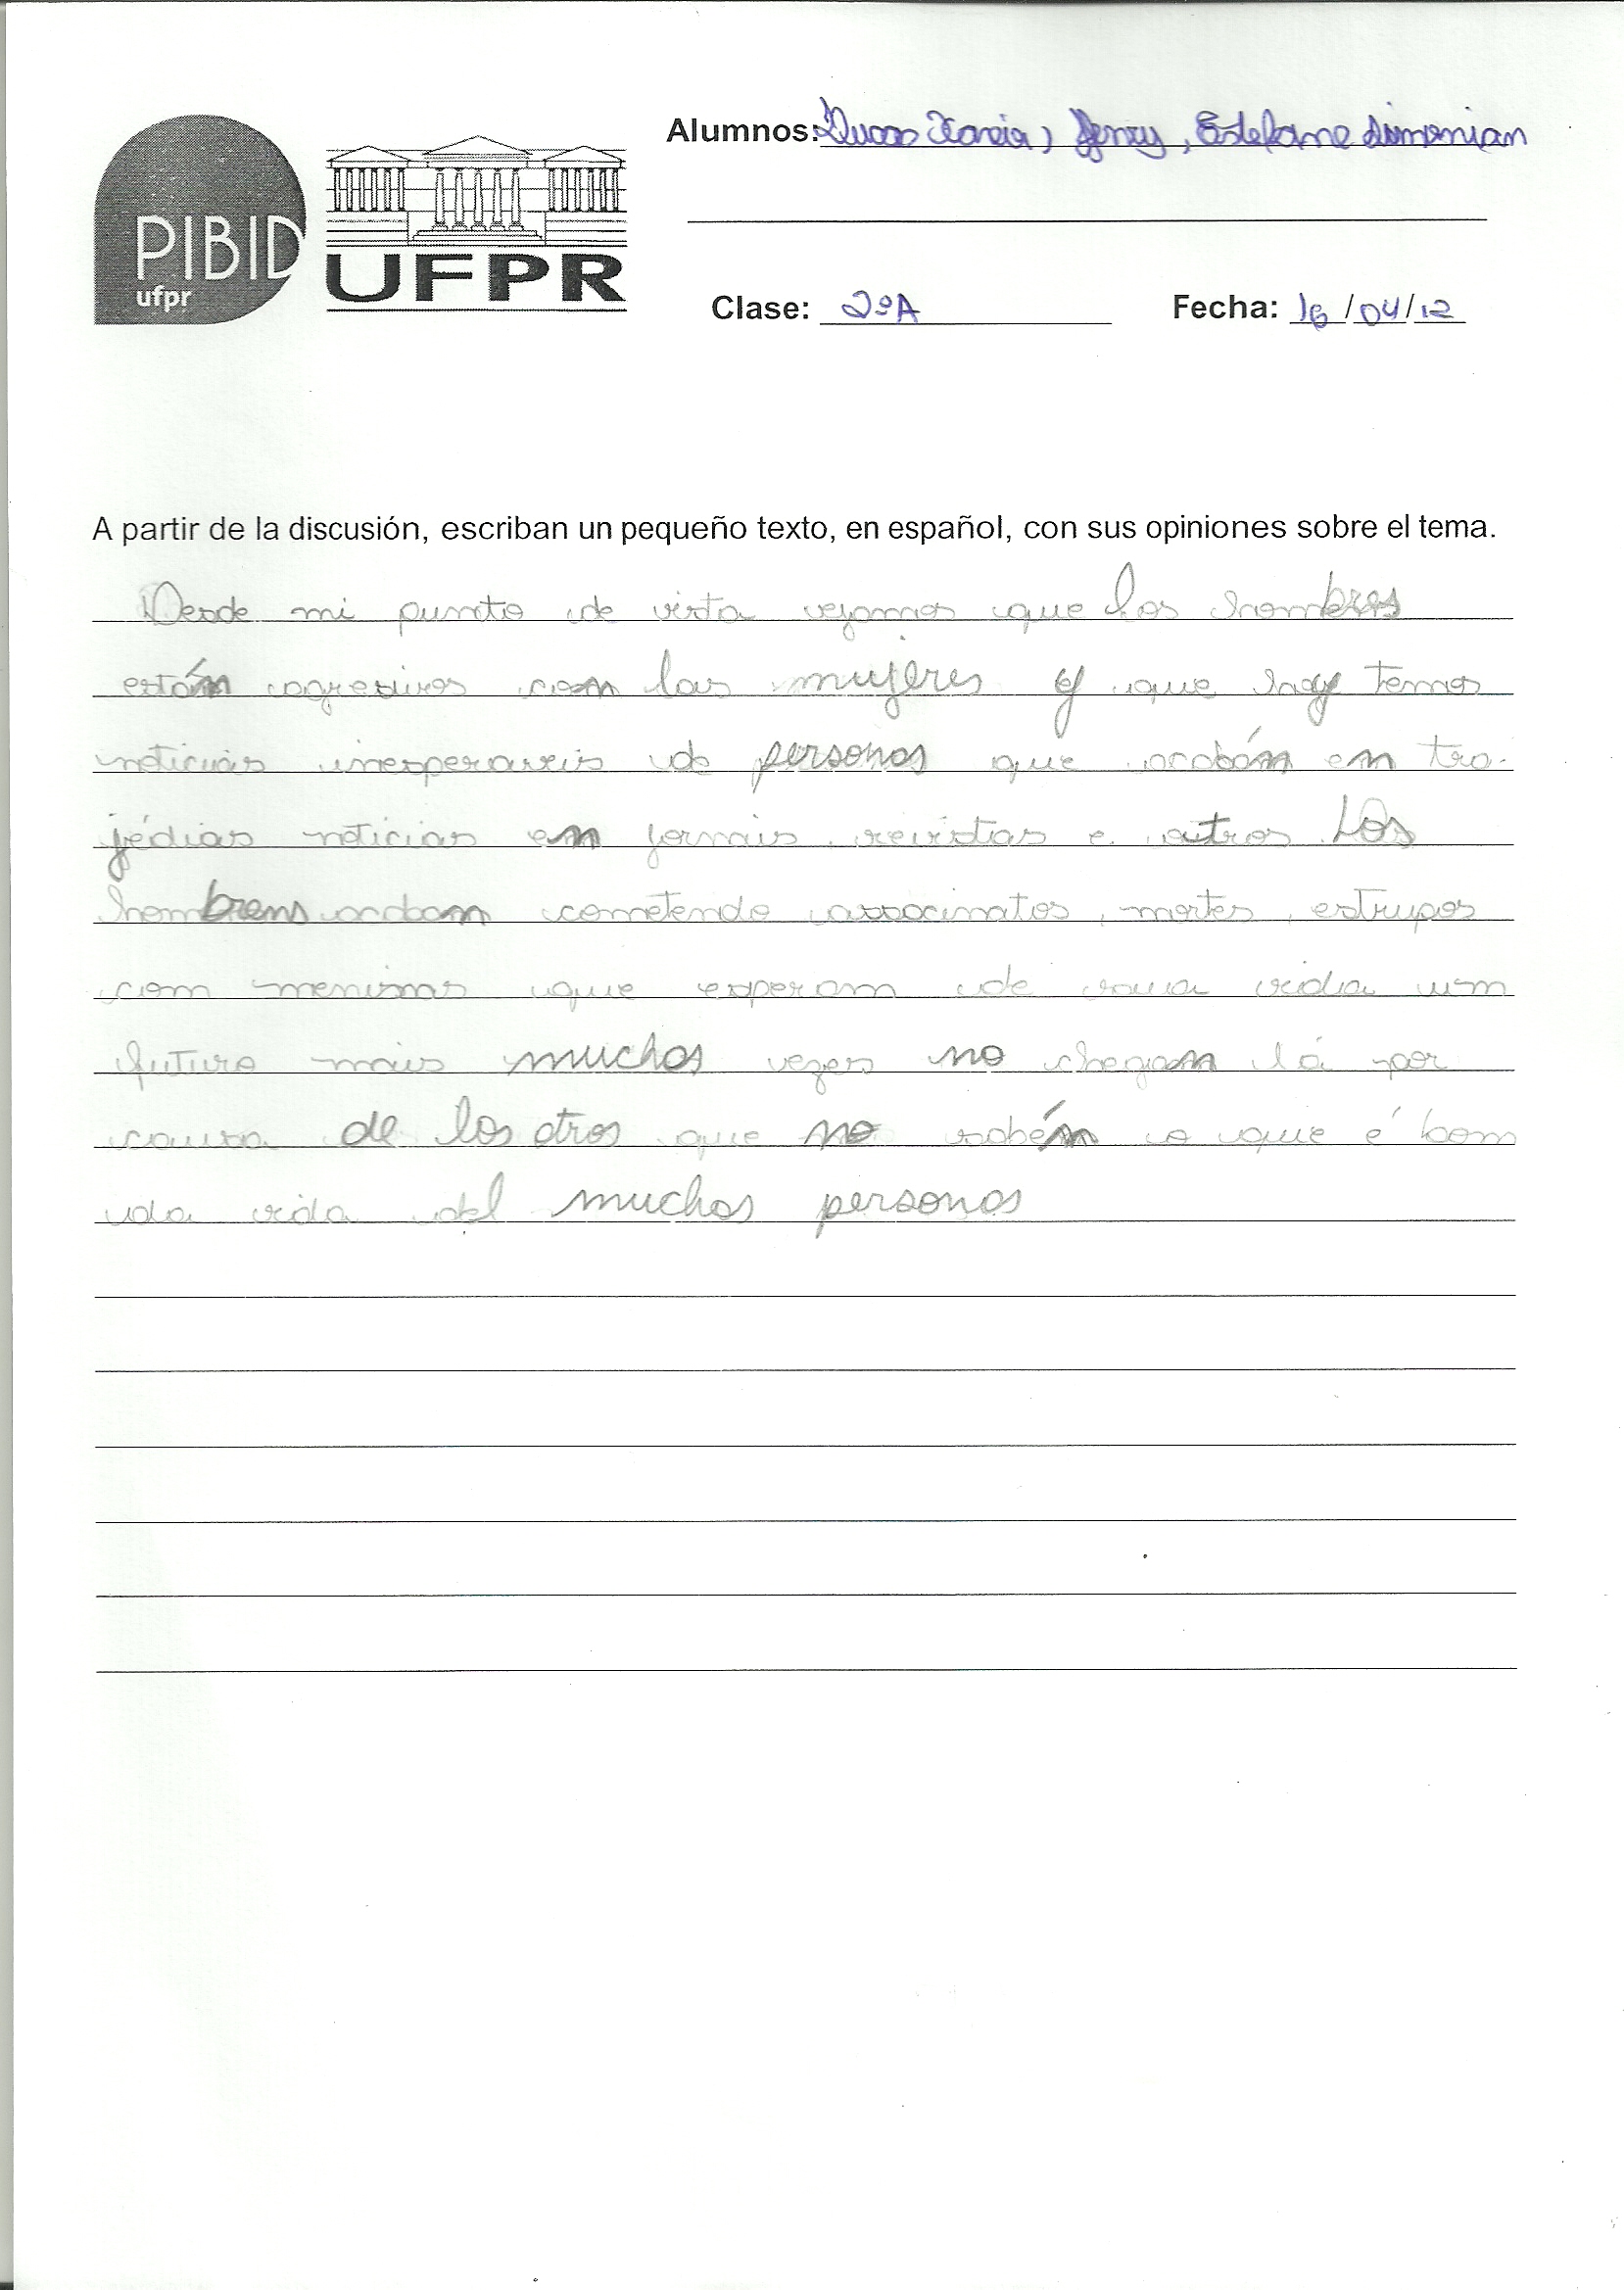 PIBID
ufpr
UFPR
Alumnos: Lucas Garcia, Jenny, Estefane Simonian
Clase: 2ºA Fecha: 16/04/12
A partir de la discusión, escriban un pequeño texto, en español, con sus opiniones sobre el tema.
Desde mi punto de vista vejamos que los hombres
están agresivos con las mujeres y que hay temos
noticias inesperaveis de personas que acabán en tra-
jédias noticias en jornais revistas e outros Los
hombrens acaban cometendo assacinatos, mortes, estrupos
com meninas que esperam de saua vida um
futuro mais muchas vezes no chegan lá por
causa de los otros que no sabén o que é bom
da vida del muchas personas